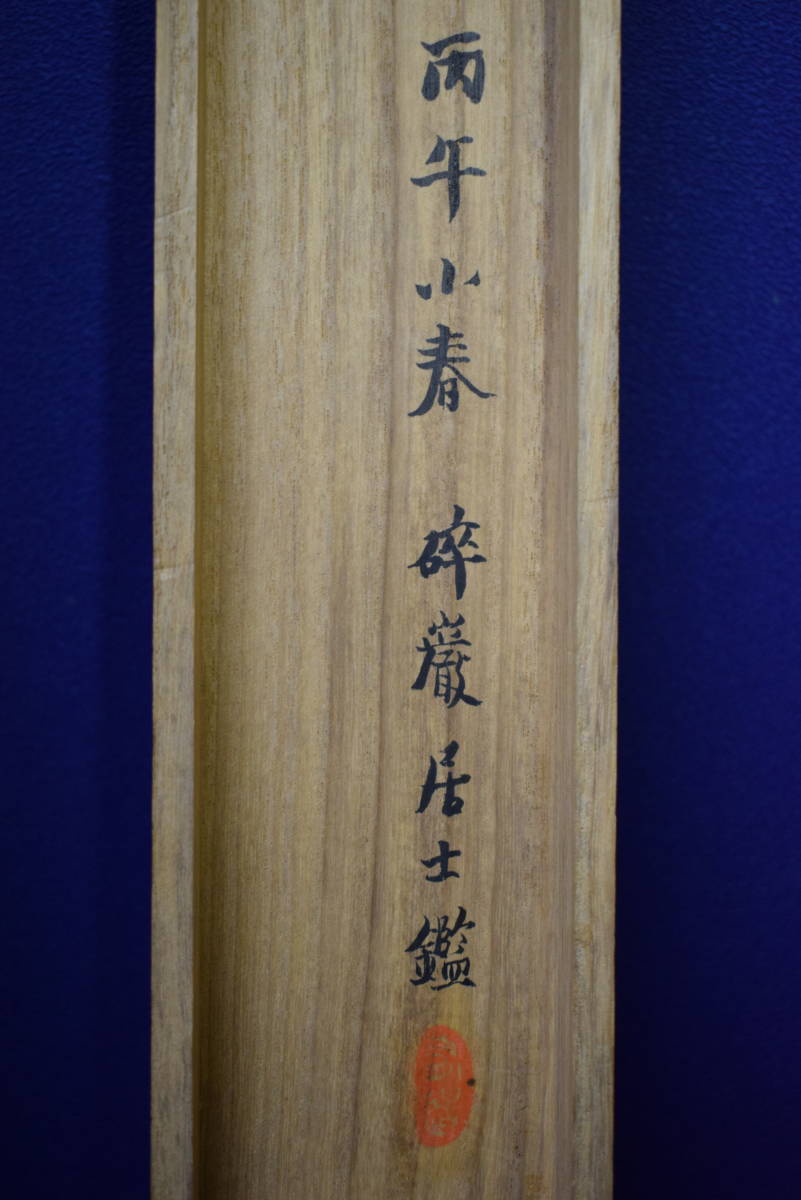 丙午小春 碎巖居士鑑